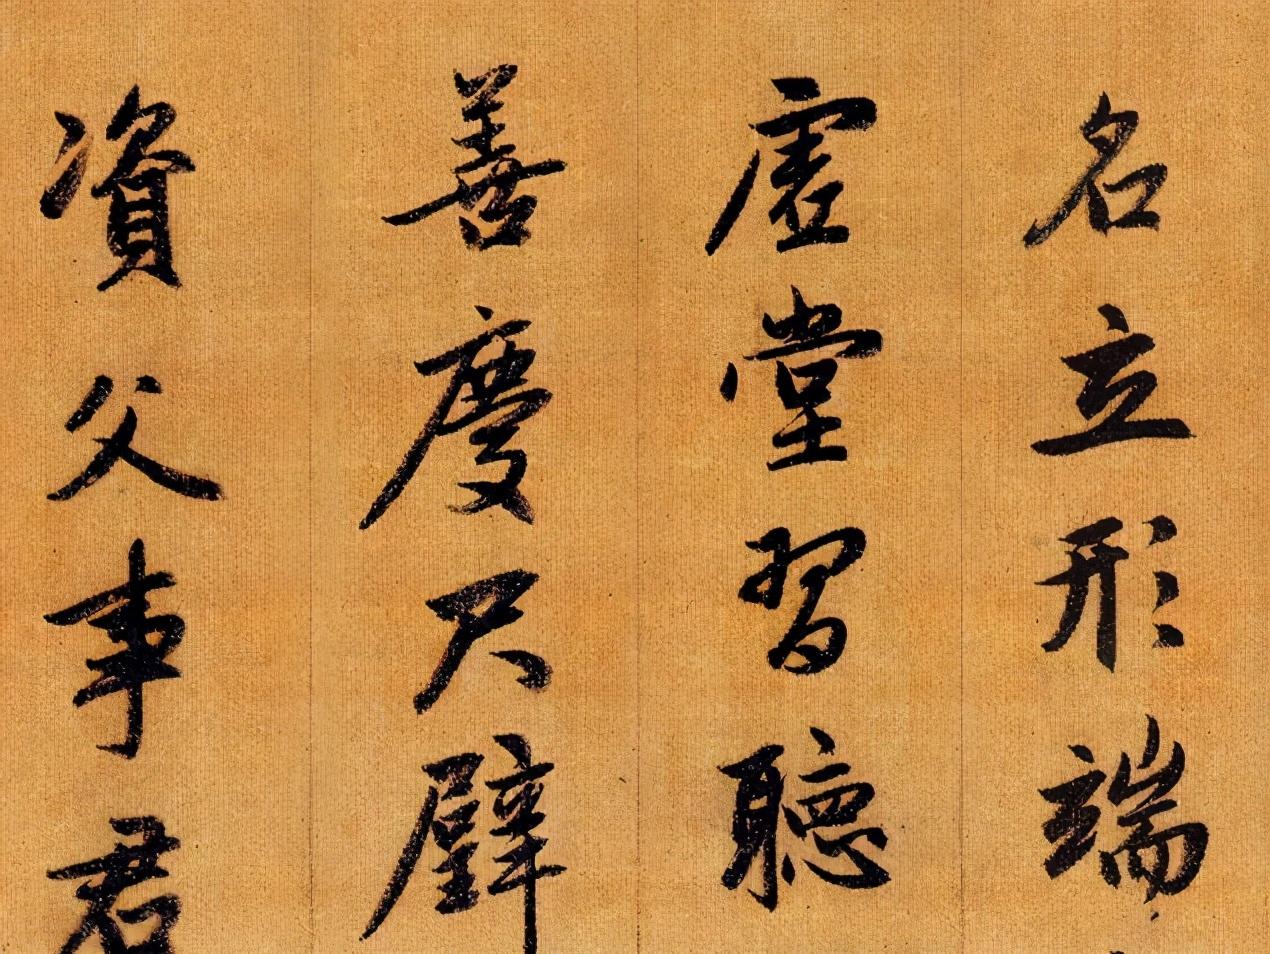 名立形端
虚堂習聽
善慶尺璧
資父事君